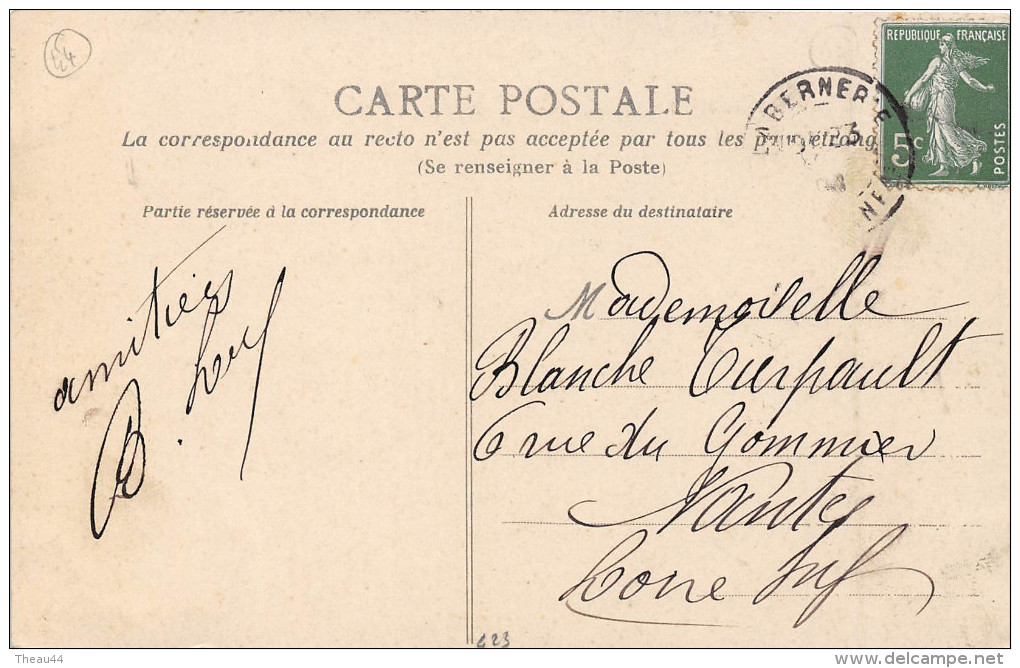 44
REPUBLIQUE FRANÇAISE
5c
POSTES
CARTE POSTALE
La correspondance au recto n'est pas acceptée par tous les pays étrang
(Se renseigner à la Poste)
Partie réservée à la correspondance
Adresse du destinataire
amitiés
B.
Mademoiselle
Blanche Turpault
6 rue du Gommier
Nantes
Loire Inf
623
Theau44
www.delcampe.net